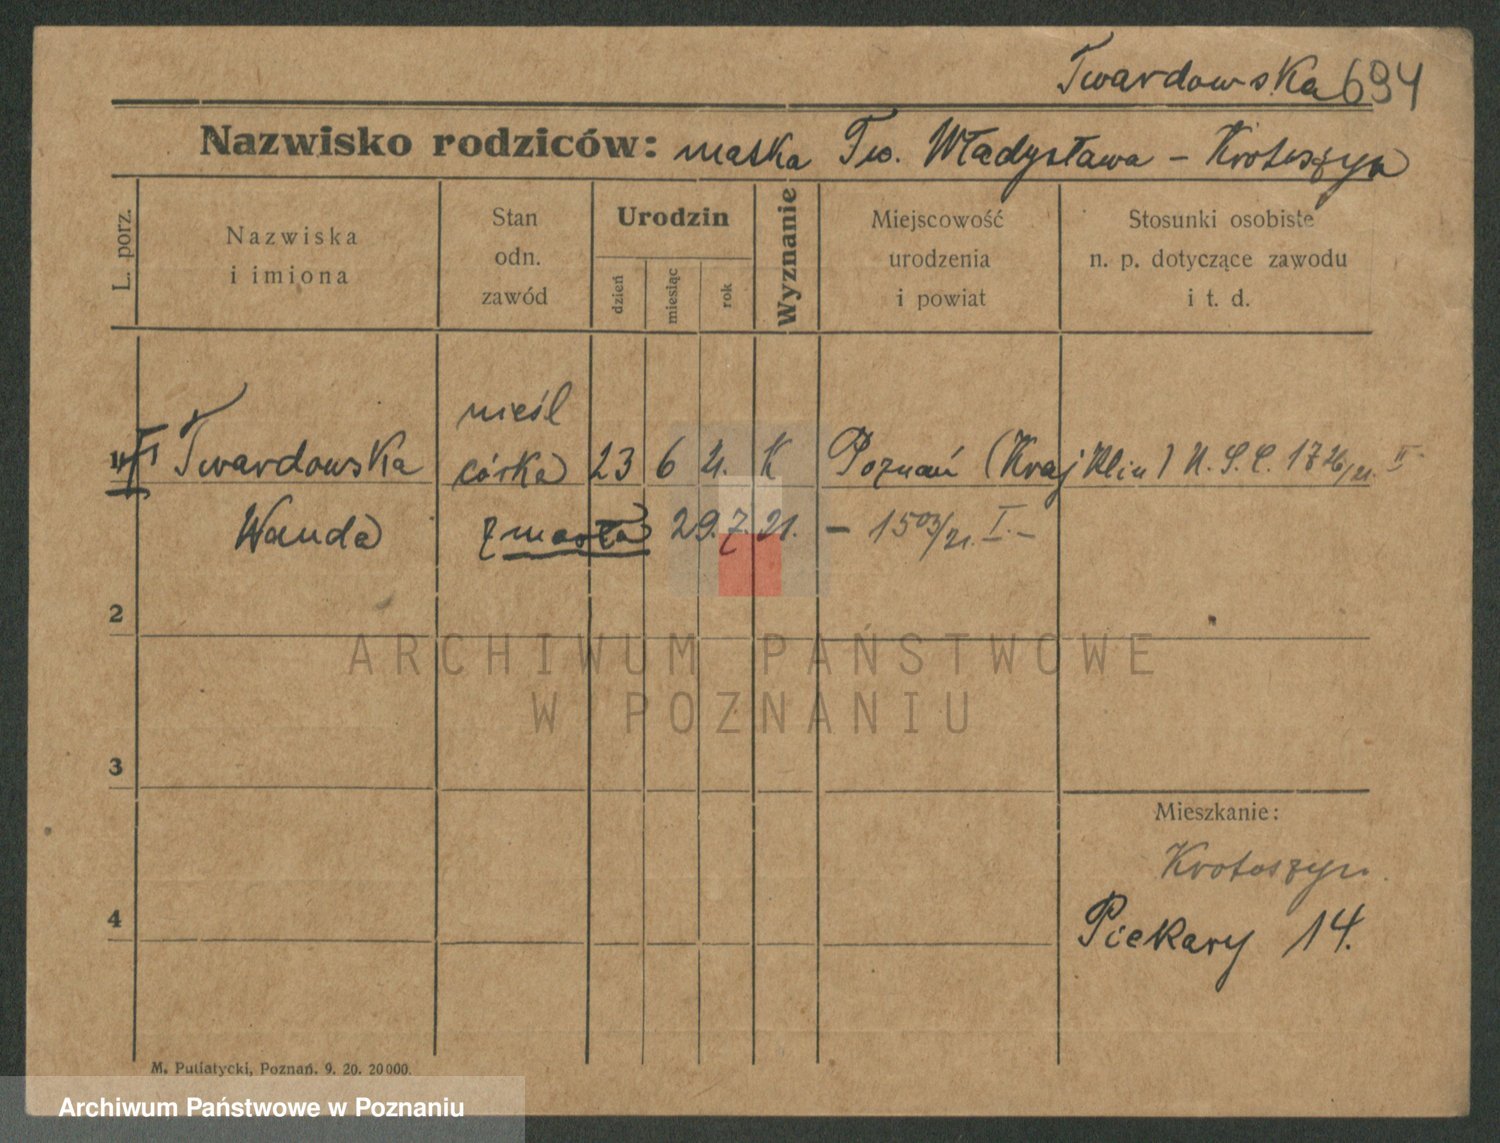 Twardowska 694
Nazwisko rodziców: matka Tw. Władysława – Krotoszyn
L. porz.
Nazwiska
i imiona
Stan
odn.
zawód
Urodzin
dzień
miesiąc
rok
Wyznanie
Miejscowość
urodzenia
i powiat
Stosunki osobiste
n. p. dotyczące zawodu
i t. d.
1 Twardowska
Wanda
nieśl
córka 23 6 21. K Poznań (Kraj Klin) U. S. C. 1726/21. II
zmarła 29.7.21. – 1503/21. I. –
2
3
4
Mieszkanie:
Krotoszyn.
Piekary 14.
M. Putiatycki, Poznań. 9. 20. 20000.
ARCHIWUM PAŃSTWOWE
W POZNANIU
Archiwum Państwowe w Poznaniu